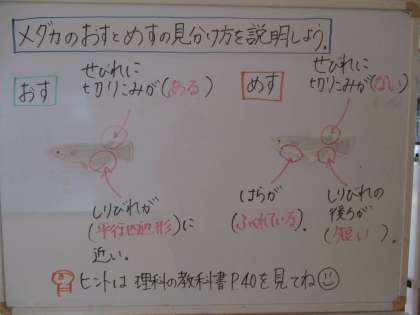 メダカのおすとめすの見分け方を説明しよう。
おす
せびれに
切りこみが(ある)
しりびれが
(平行四辺形)に
近い。
めす
せびれに
切りこみが(ない)
はらが
(ふくれている)。
しりびれの
後ろが
(短い)。
ヒントは 理科の教科書P.40を見てね